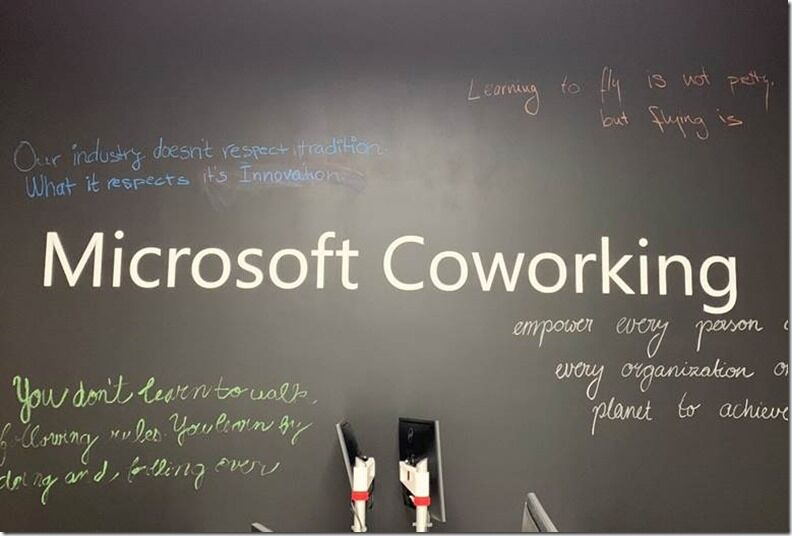 Learning to fly is not pretty.
but flying is
Our industry doesn't respect tradition.
What it respects it's Innovation.
Microsoft Coworking
empower every person
every organization o
planet to achieve
You don't learn to walk,
following rules. You learn by
doing and, falling over